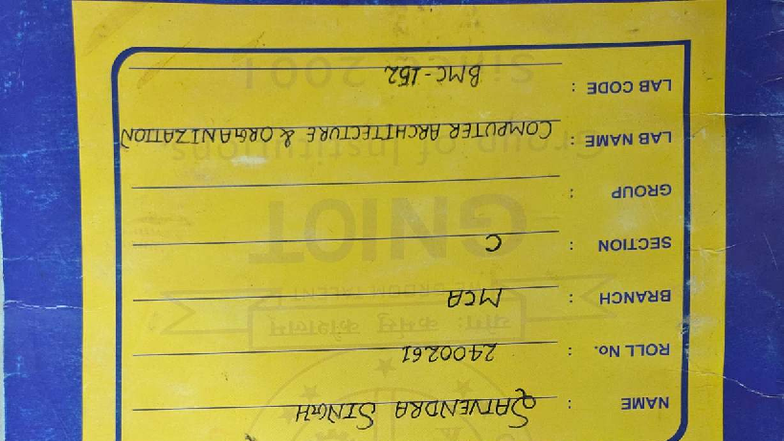 NAME : SATVENDRA SINGH
ROLL No. : 2400261
BRANCH : MCA
SECTION : C
GROUP :
LAB NAME : COMPUTER ARCHITECTURE & ORGANIZATION
LAB CODE : BMC-152
योगः कर्मसु कौशलम्
GNIOT
Group of Institutions
Since 2001